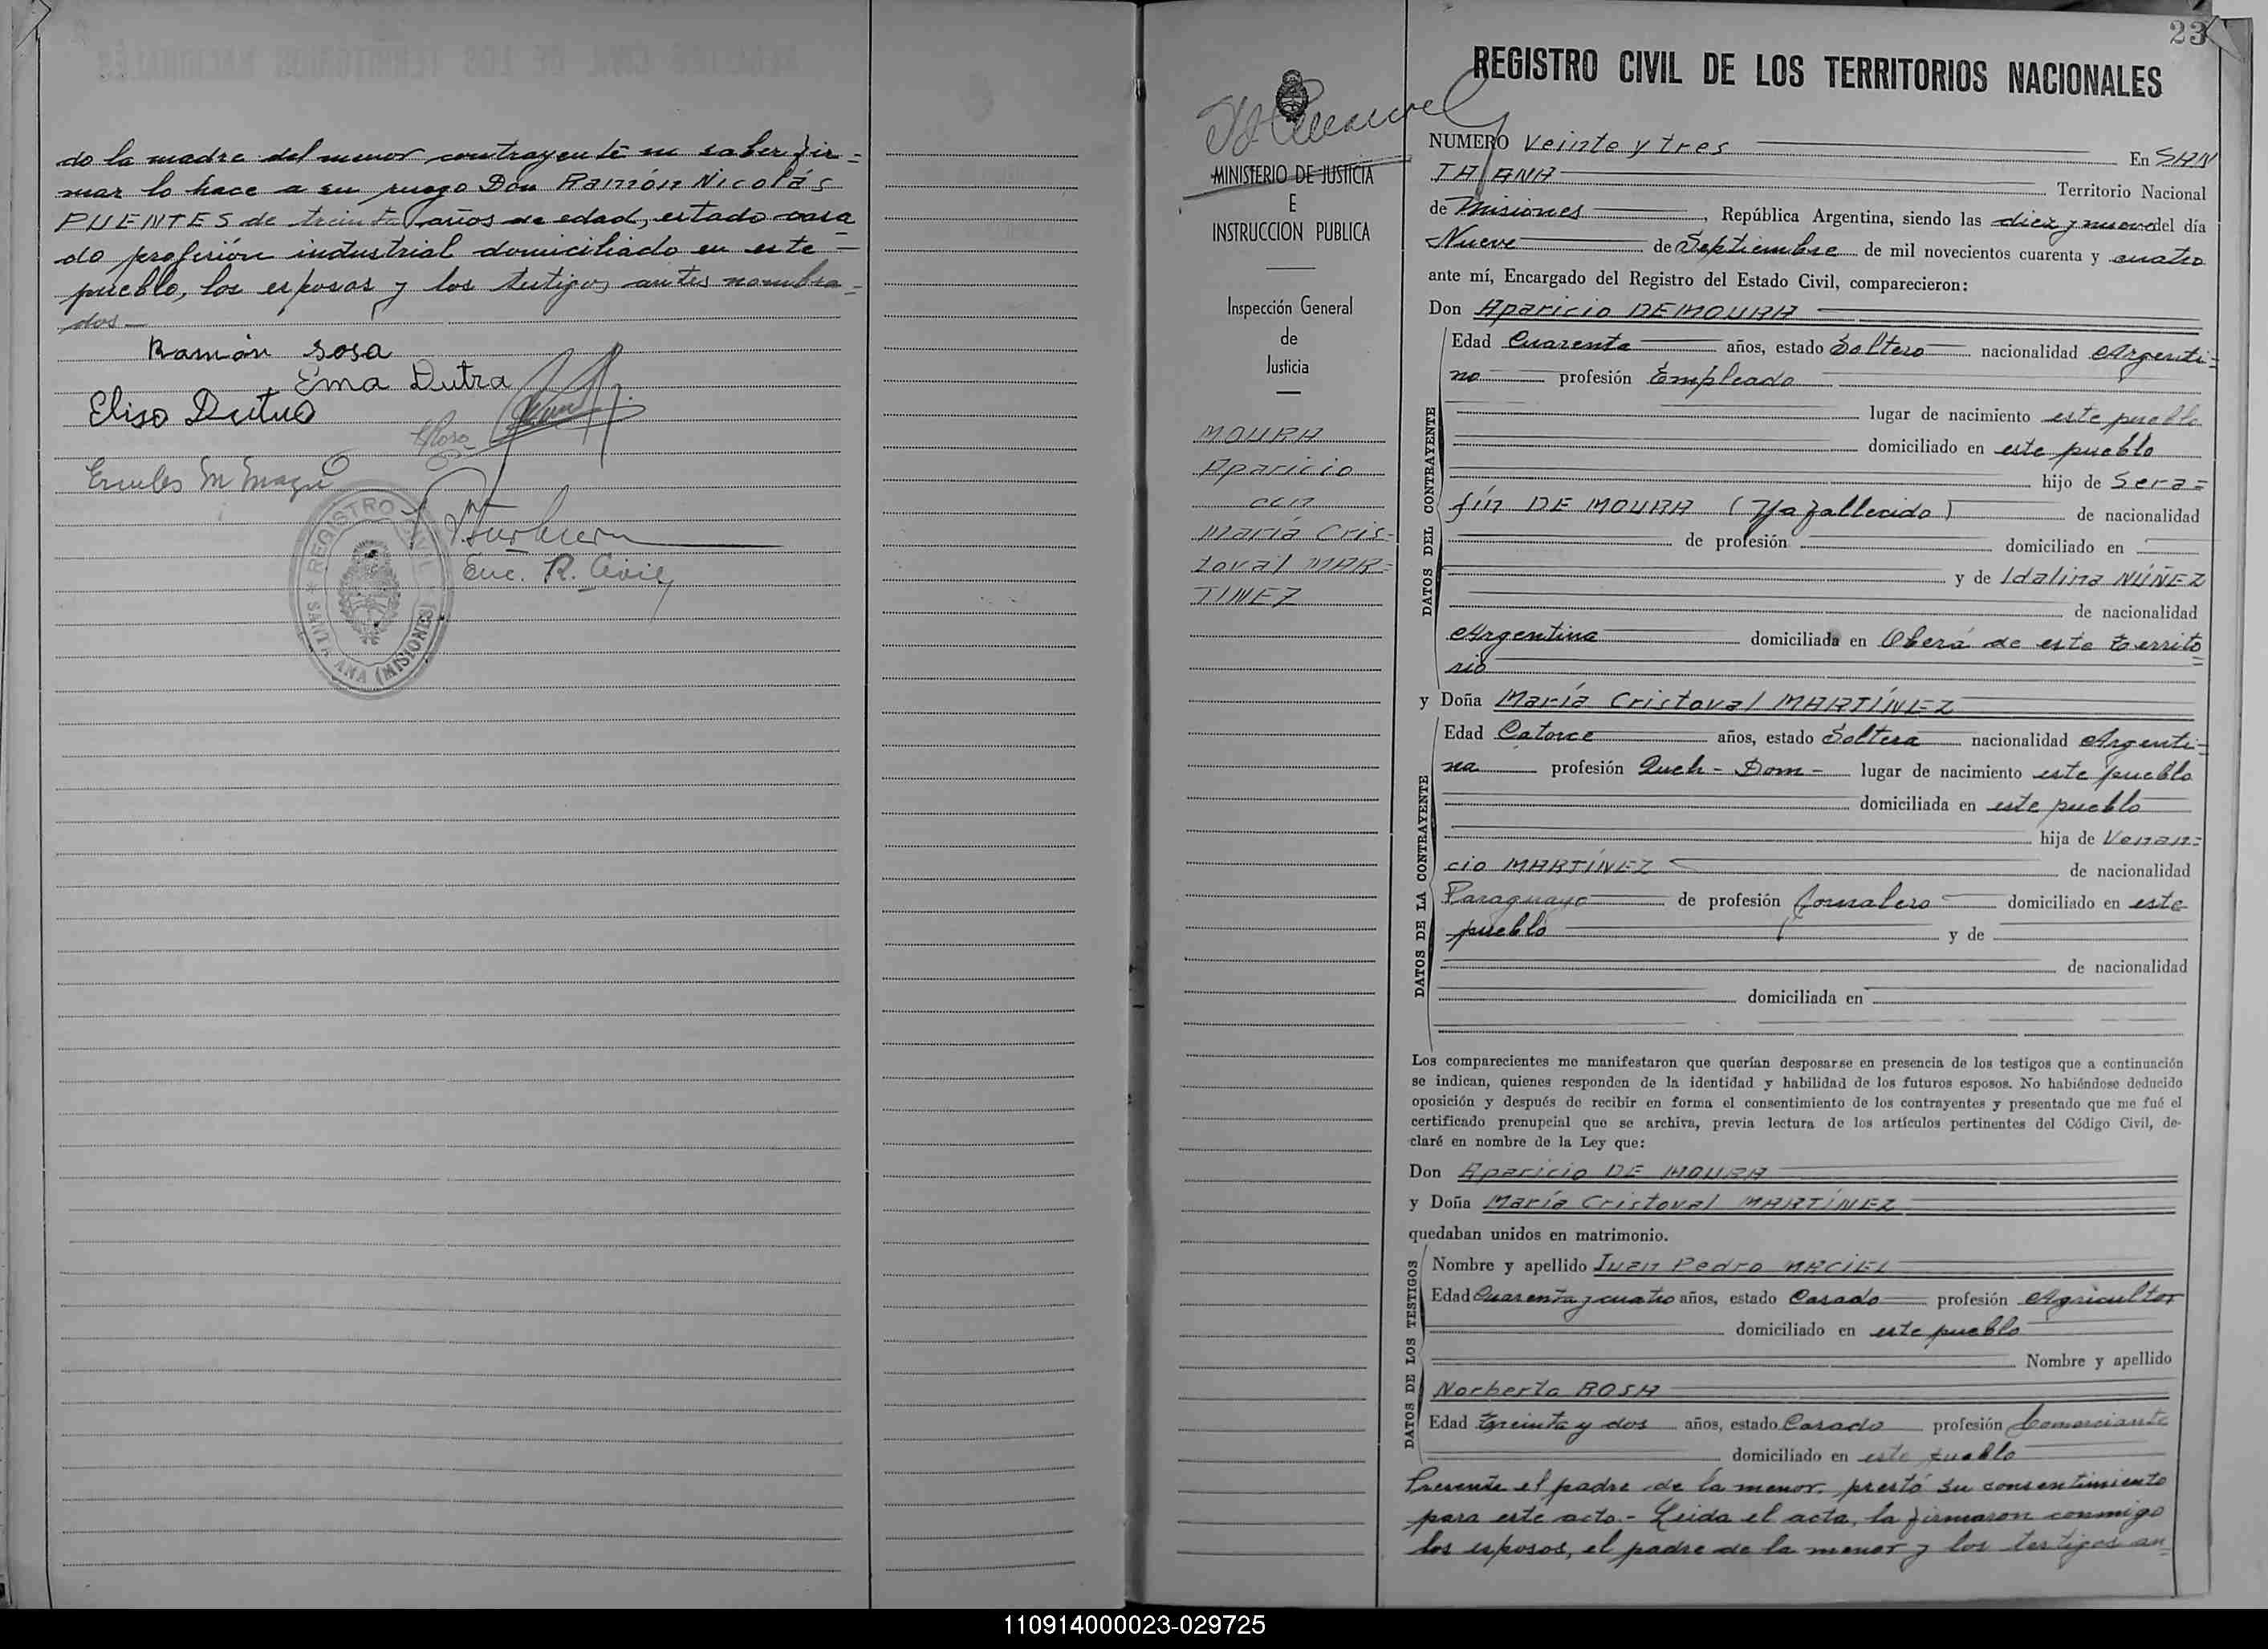 do la madre del menor contrayente no saber fir=
mar lo hace a su ruego Don Ramón Nicolás
PUENTES de treinta años de edad, estado casa
do profesión industrial domiciliado en este
pueblo, los esposos y los testigos antes nombra-
dos.—
Ramón Sosa
Ema Dutra
Eliso
Enc. R. Civil
REGISTRO CIVIL
SANTA ANA (MISIONES)
23
REGISTRO CIVIL DE LOS TERRITORIOS NACIONALES
MINISTERIO DE JUSTICIA
E
INSTRUCCION PUBLICA
Inspección General
de
Justicia
MOURA
Aparicio
con
María Cris-
toval MAR=
TINEZ
NUMERO veinte y tres En SAN
TA ANA Territorio Nacional
de Misiones, República Argentina, siendo las diez y nueve del día
Nueve de Septiembre de mil novecientos cuarenta y cuatro
ante mí, Encargado del Registro del Estado Civil, comparecieron:
Don Aparicio DE MOURA
DATOS DEL CONTRAYENTE
Edad Cuarenta años, estado Soltero nacionalidad Argenti=
no profesión Empleado
lugar de nacimiento este pueblo
domiciliado en este pueblo
hijo de Sera=
fín DE MOURA (Ya fallecido) de nacionalidad
de profesión domiciliado en
y de Idalina NÚÑEZ
de nacionalidad
Argentina domiciliada en Oberá de este territo
rio
y Doña María Cristoval MARTÍNEZ
DATOS DE LA CONTRAYENTE
Edad Catorce años, estado Soltera nacionalidad Argenti=
na profesión Queh - Dom - lugar de nacimiento este pueblo
domiciliada en este pueblo
hija de Venan=
cio MARTÍNEZ de nacionalidad
Paraguayo de profesión Jornalero domiciliado en este
pueblo y de
de nacionalidad
domiciliada en
Los comparecientes me manifestaron que querían desposarse en presencia de los testigos que a continuación
se indican, quienes responden de la identidad y habilidad de los futuros esposos. No habiéndose deducido
oposición y después de recibir en forma el consentimiento de los contrayentes y presentado que me fué el
certificado prenupcial que se archiva, previa lectura de los artículos pertinentes del Código Civil, de-
claré en nombre de la Ley que:
Don Aparicio DE MOURA
y Doña María Cristoval MARTÍNEZ
quedaban unidos en matrimonio.
DATOS DE LOS TESTIGOS
Nombre y apellido Juan Pedro MACIEL
Edad Cuarenta y cuatro años, estado Casado profesión Agricultor
domiciliado en este pueblo
Nombre y apellido
Norberto ROSA
Edad treinta y dos años, estado Casado profesión Comerciante
domiciliado en este pueblo
Presente el padre de la menor, prestó su consentimiento
para este acto.- Leida el acta, la firmaron conmigo
los esposos, el padre de la menor y los testigos an=
110914000023-029725